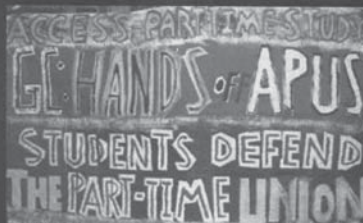 ACCESS PART-TIME STUDY
GC: HANDS OFF APUS
STUDENTS DEFEND
THE PART-TIME UNION